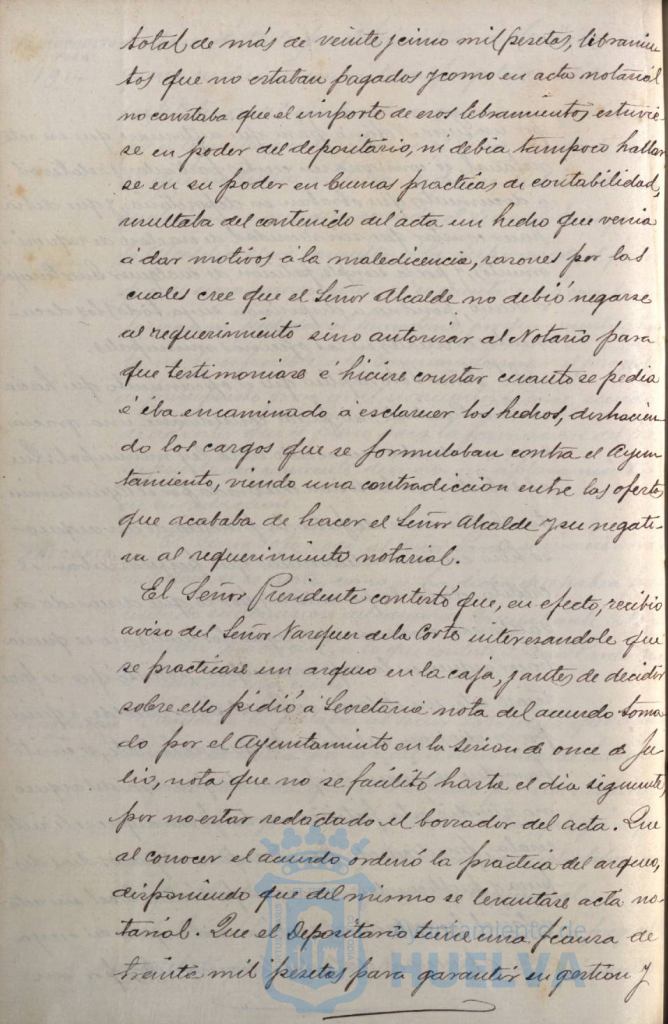 total de más de veinte y cinco mil pesetas, libramien
tos que no estaban pagados y como en acta notarial
no constaba que el importe de esos libramientos estuvie-
se en poder del depositario, ni debia tampoco hallar
se en su poder en buenas practicas de contabilidad,
resultaba del contenido del acta un hecho que venia
á dar motivos á la maledicencia, razones por las
cuales cree que el Señor Alcalde no debió negarse
al requerimiento sino autorizar al Notario para
que testimoniase é hiciese constar cuanto se pedia
é iba encaminado á esclarecer los hechos, deshacien
do los cargos que se formulaban contra el Ayun
tamiento, viendo una contradiccion entre las ofertas
que acababa de hacer el Señor Alcalde y su negati-
va al requerimiento notarial.
El Señor Presidente contestó que, en efecto, recibio
aviso del Señor Vazquez de la Corte interesandole que
se practicase un arqueo en la caja, y antes de decidir
sobre ello pidió á Secretaria nota del acuerdo toma
do por el Ayuntamiento en la sesion de once de Ju-
lio, nota que no se facilitó hasta el dia siguiente,
por no estar redactado el borrador del acta. Que
al conocer el acuerdo ordenó la practica del arqueo,
disponiendo que del mismo se levantase acta no-
tarial. Que el Depositario tiene una fianza de
treinta mil pesetas para garantir su gestion y
Ayuntamiento de
HUELVA